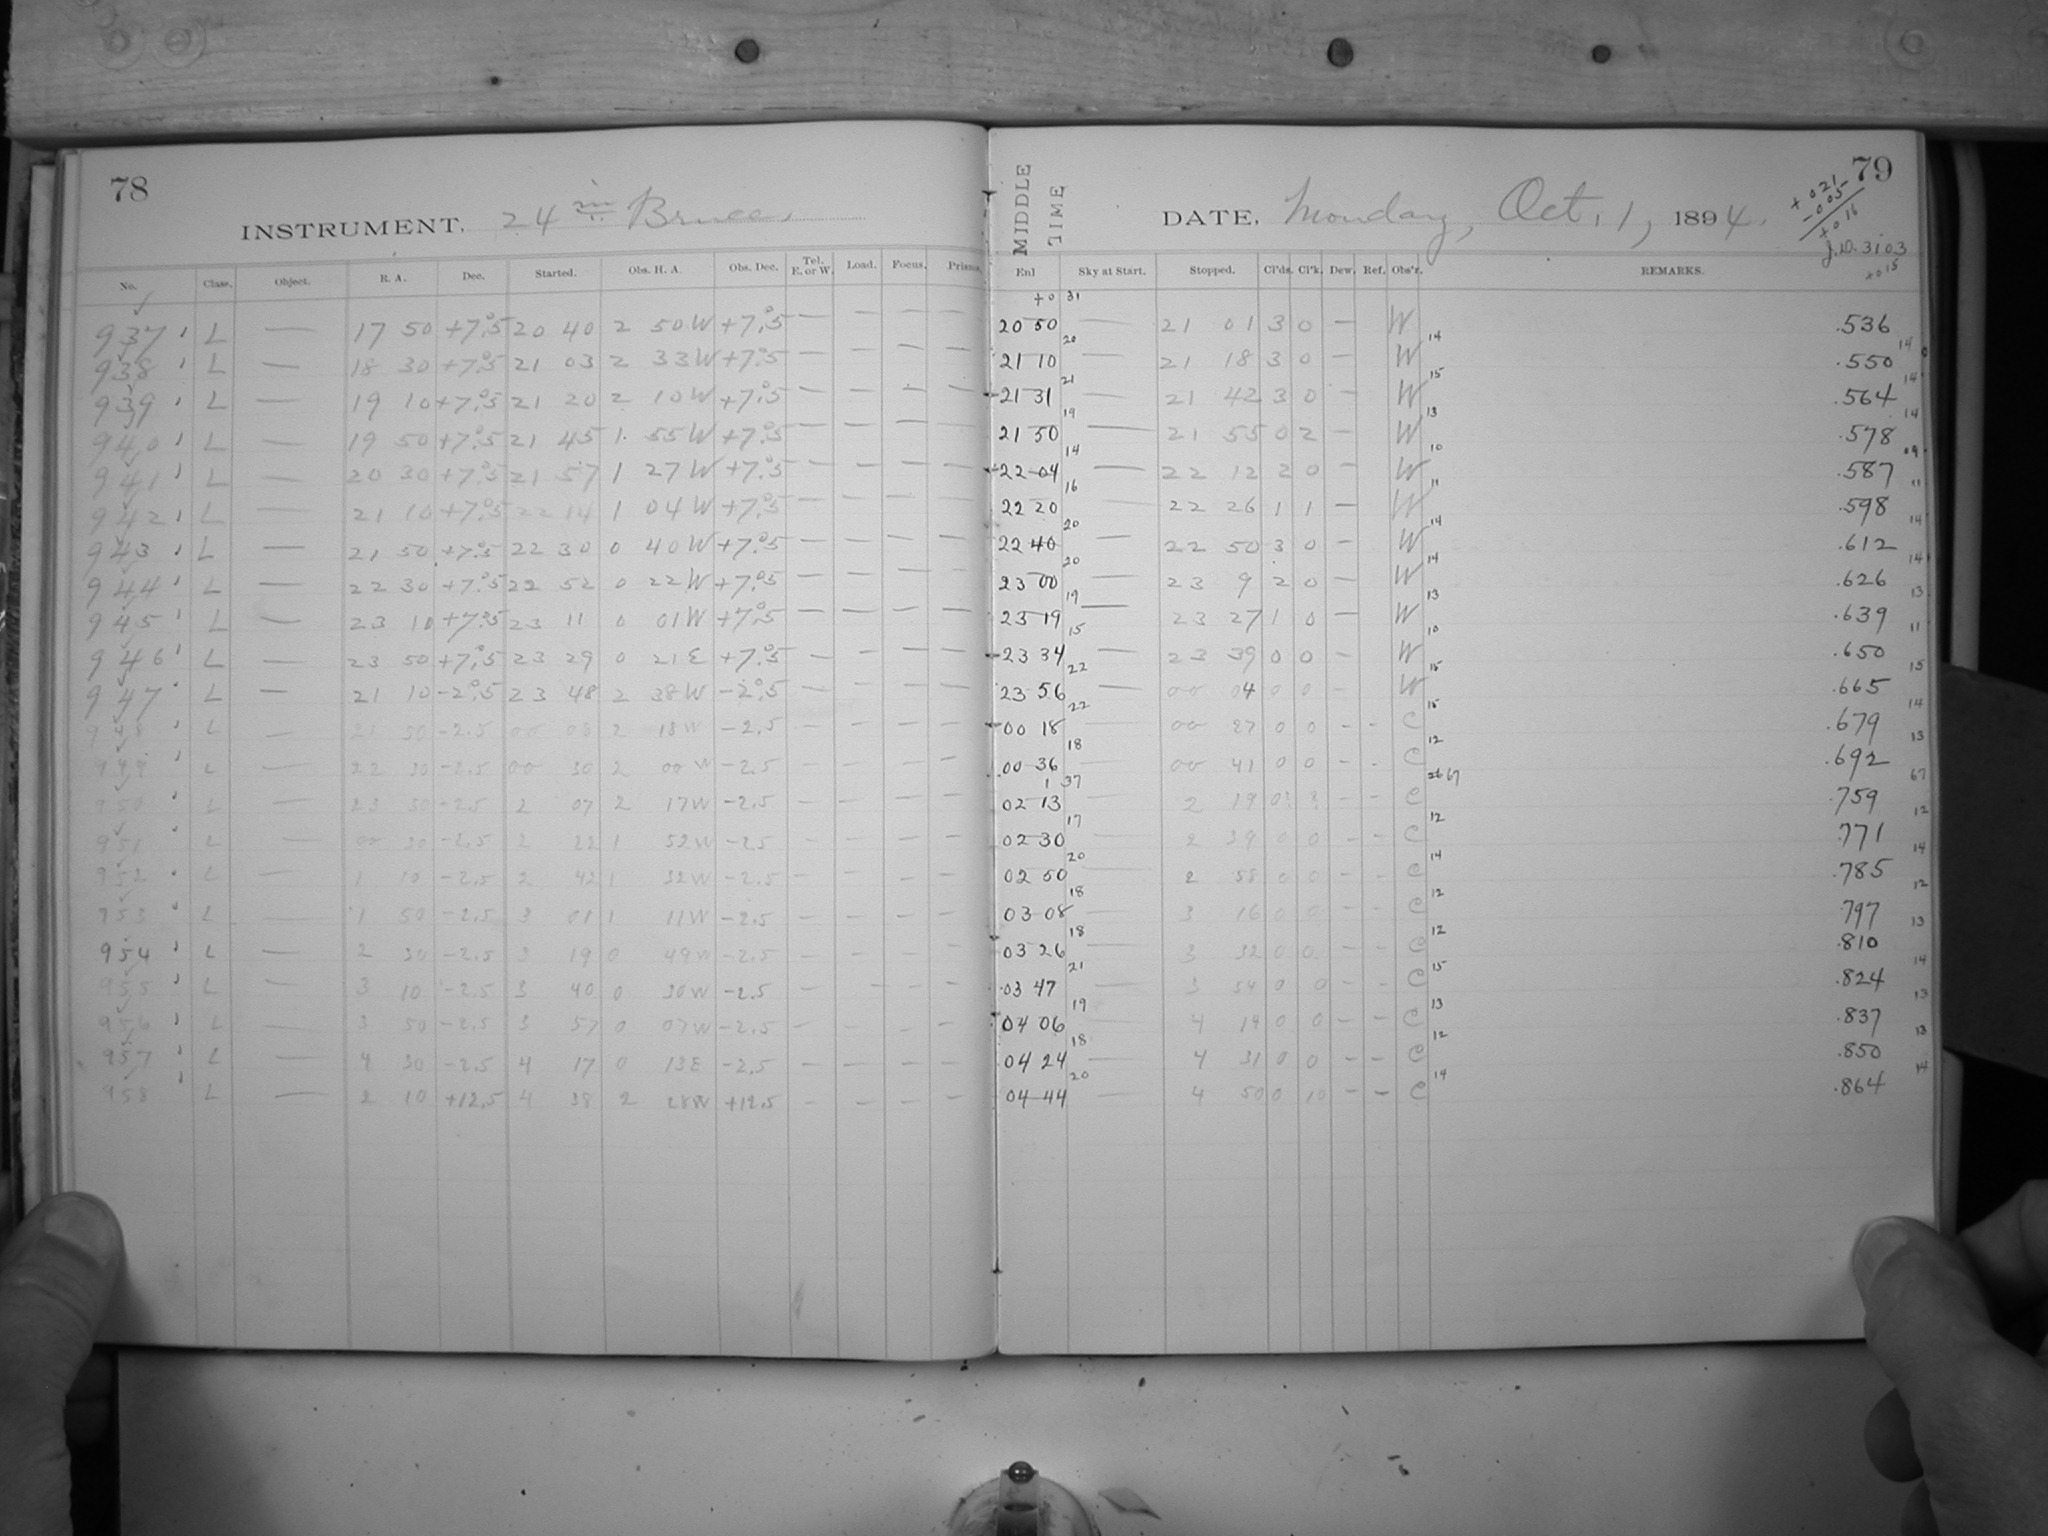 78
INSTRUMENT. 24 in Bruce.
No. Class. Object. R. A. Dec. Started. Obs. H. A. Obs. Dec. Tel. E. or W. Load. Focus. Prisms.
937 L — 17 50 +7.°5 20 40 2 50 W +7.°5 — — — —
938 L — 18 30 +7.°5 21 03 2 33 W +7.°5 — — — —
939 L — 19 10 +7.°5 21 20 2 10 W +7.°5 — — — —
940 L — 19 50 +7.°5 21 45 1 55 W +7.°5 — — — —
941 L — 20 30 +7.°5 21 57 1 27 W +7.°5 — — — —
942 L — 21 10 +7.°5 22 14 1 04 W +7.°5 — — — —
943 L — 21 50 +7.°5 22 30 0 40 W +7.°5 — — — —
944 L — 22 30 +7.°5 22 52 0 22 W +7.°5 — — — —
945 L — 23 10 +7.°5 23 11 0 01 W +7.°5 — — — —
946 L — 23 50 +7.°5 23 29 0 21 E +7.°5 — — — —
947 L — 21 10 -2.°5 23 48 2 38 W -2.°5 — — — —
948 L — 21 50 -2.5 00 08 2 18 W -2.5 — — — —
949 L — 22 30 -2.5 00 30 2 00 W -2.5 — — — —
950 L — 23 50 -2.5 2 07 2 17 W -2.5 — — — —
951 L — 00 30 -2.5 2 22 1 52 W -2.5 — — — —
952 L — 1 10 -2.5 2 42 1 32 W -2.5 — — — —
953 L — 1 50 -2.5 3 01 1 11 W -2.5 — — — —
954 L — 2 30 -2.5 3 19 0 49 W -2.5 — — — —
955 L — 3 10 -2.5 3 40 0 30 W -2.5 — — — —
956 L — 3 50 -2.5 3 57 0 07 W -2.5 — — — —
957 L — 4 30 -2.5 4 17 0 13 E -2.5 — — — —
958 L — 2 10 +12.5 4 38 2 28 W +12.5 — — — —
79
MIDDLE TIME
DATE, Monday, Oct. 1, 1894.
+021
-005
+016
J.D. 3103
+015
Enl Sky at Start. Stopped. Cl'ds. Cl'k. Dew. Ref. Obs'r. REMARKS.
+0 31
20 50 — 21 01 3 0 — W .536
20 14 14
21 10 — 21 18 3 0 — W .550
21 15 14
21 31 — 21 42 3 0 — W .564
19 13 14
21 50 — 21 55 0 2 — W .578
14 10 09
22 04 — 22 12 2 0 — W .587
16 11 11
22 20 — 22 26 1 1 — W .598
20 14 14
22 40 — 22 50 3 0 — W .612
20 14 14
23 00 — 23 9 2 0 — W .626
19 13 13
23 19 — 23 27 1 0 — W .639
15 10 11
23 34 — 23 39 0 0 — W .650
22 15 15
23 56 — 00 04 0 0 — W .665
22 15 14
00 18 — 00 27 0 0 — — C .679
18 12 13
00 36 — 00 41 0 0 — — C .692
1 37 67 67
02 13 — 2 19 0? ? — — C .759
17 12 12
02 30 — 2 39 0 0 — — C .771
20 14 14
02 50 — 2 58 0 0 — — C .785
18 12 12
03 08 — 3 16 0 0 — — C .797
18 12 13
03 26 — 3 32 0 0 — — C .810
21 15 14
03 47 — 3 54 0 0 — — C .824
19 13 13
04 06 — 4 14 0 0 — — C .837
18 12 13
04 24 — 4 31 0 0 — — C .850
20 14 14
04 44 — 4 50 0 10 — — C .864